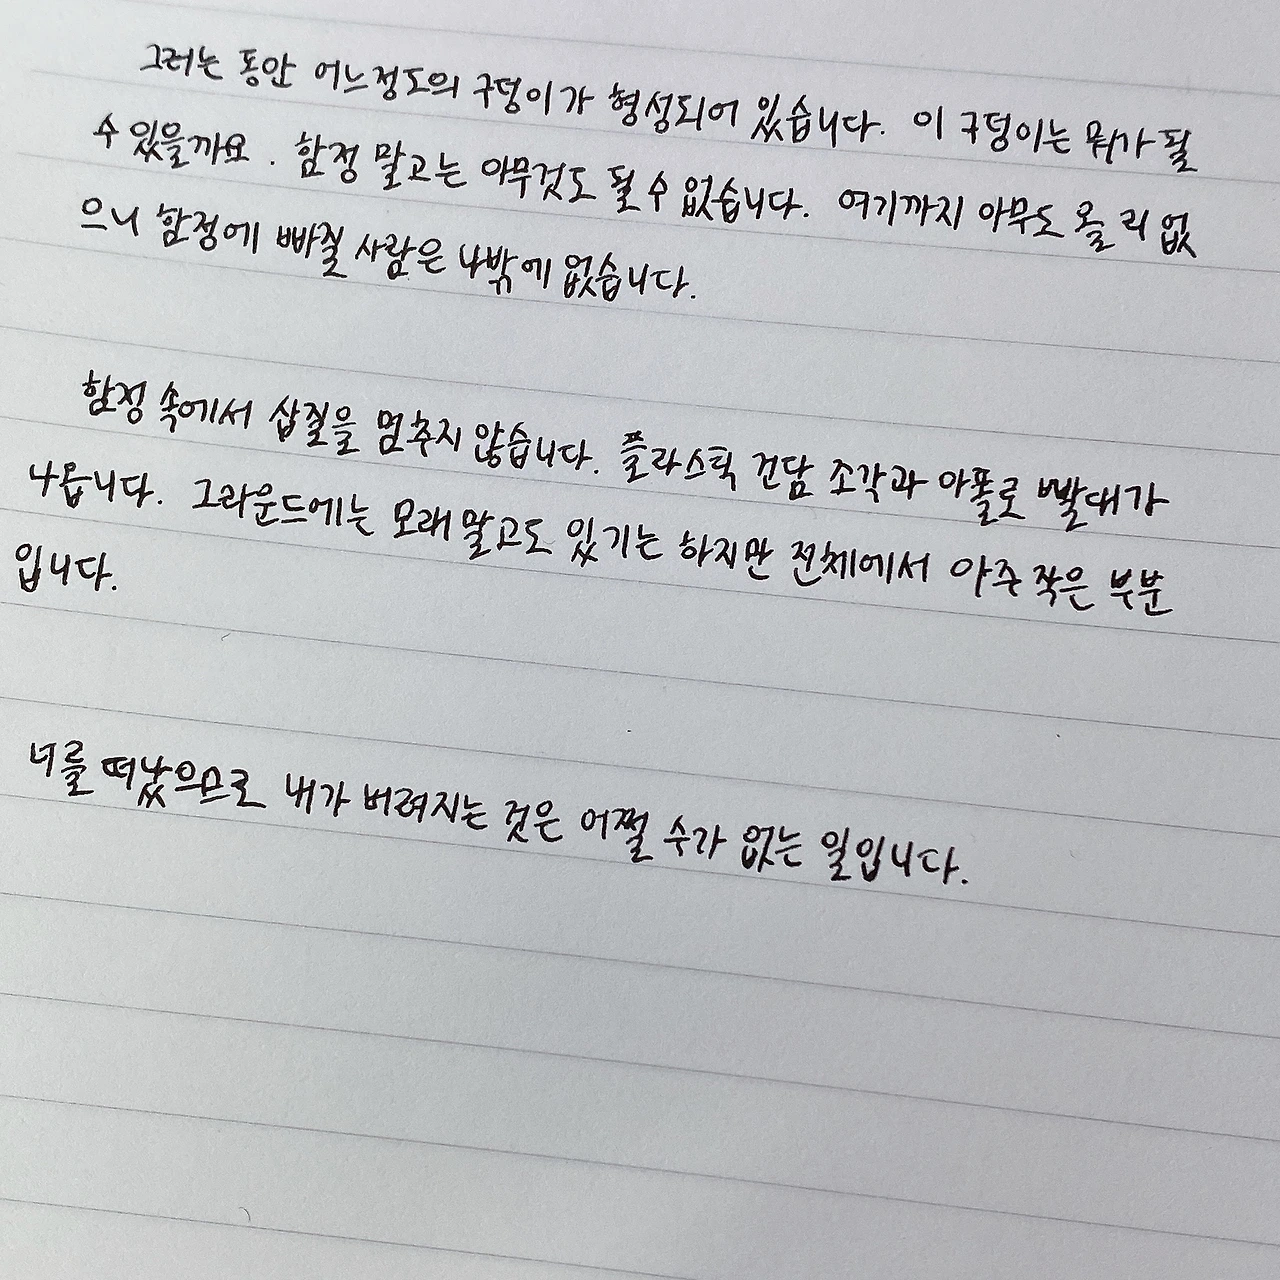 그러는 동안 어느정도의 구덩이가 형성되어 있습니다. 이 구덩이는 뭐가 될
수 있을까요. 함정 말고는 아무것도 될 수 없습니다. 여기까지 아무도 올 리 없
으니 함정에 빠질 사람은 나밖에 없습니다.
함정 속에서 삽질을 멈추지 않습니다. 플라스틱 건담 조각과 아폴로 빨대가
나옵니다. 그라운드에는 모래 말고도 있기는 하지만 전체에서 아주 작은 부분
입니다.
너를 떠났으므로 내가 버려지는 것은 어쩔 수가 없는 일입니다.